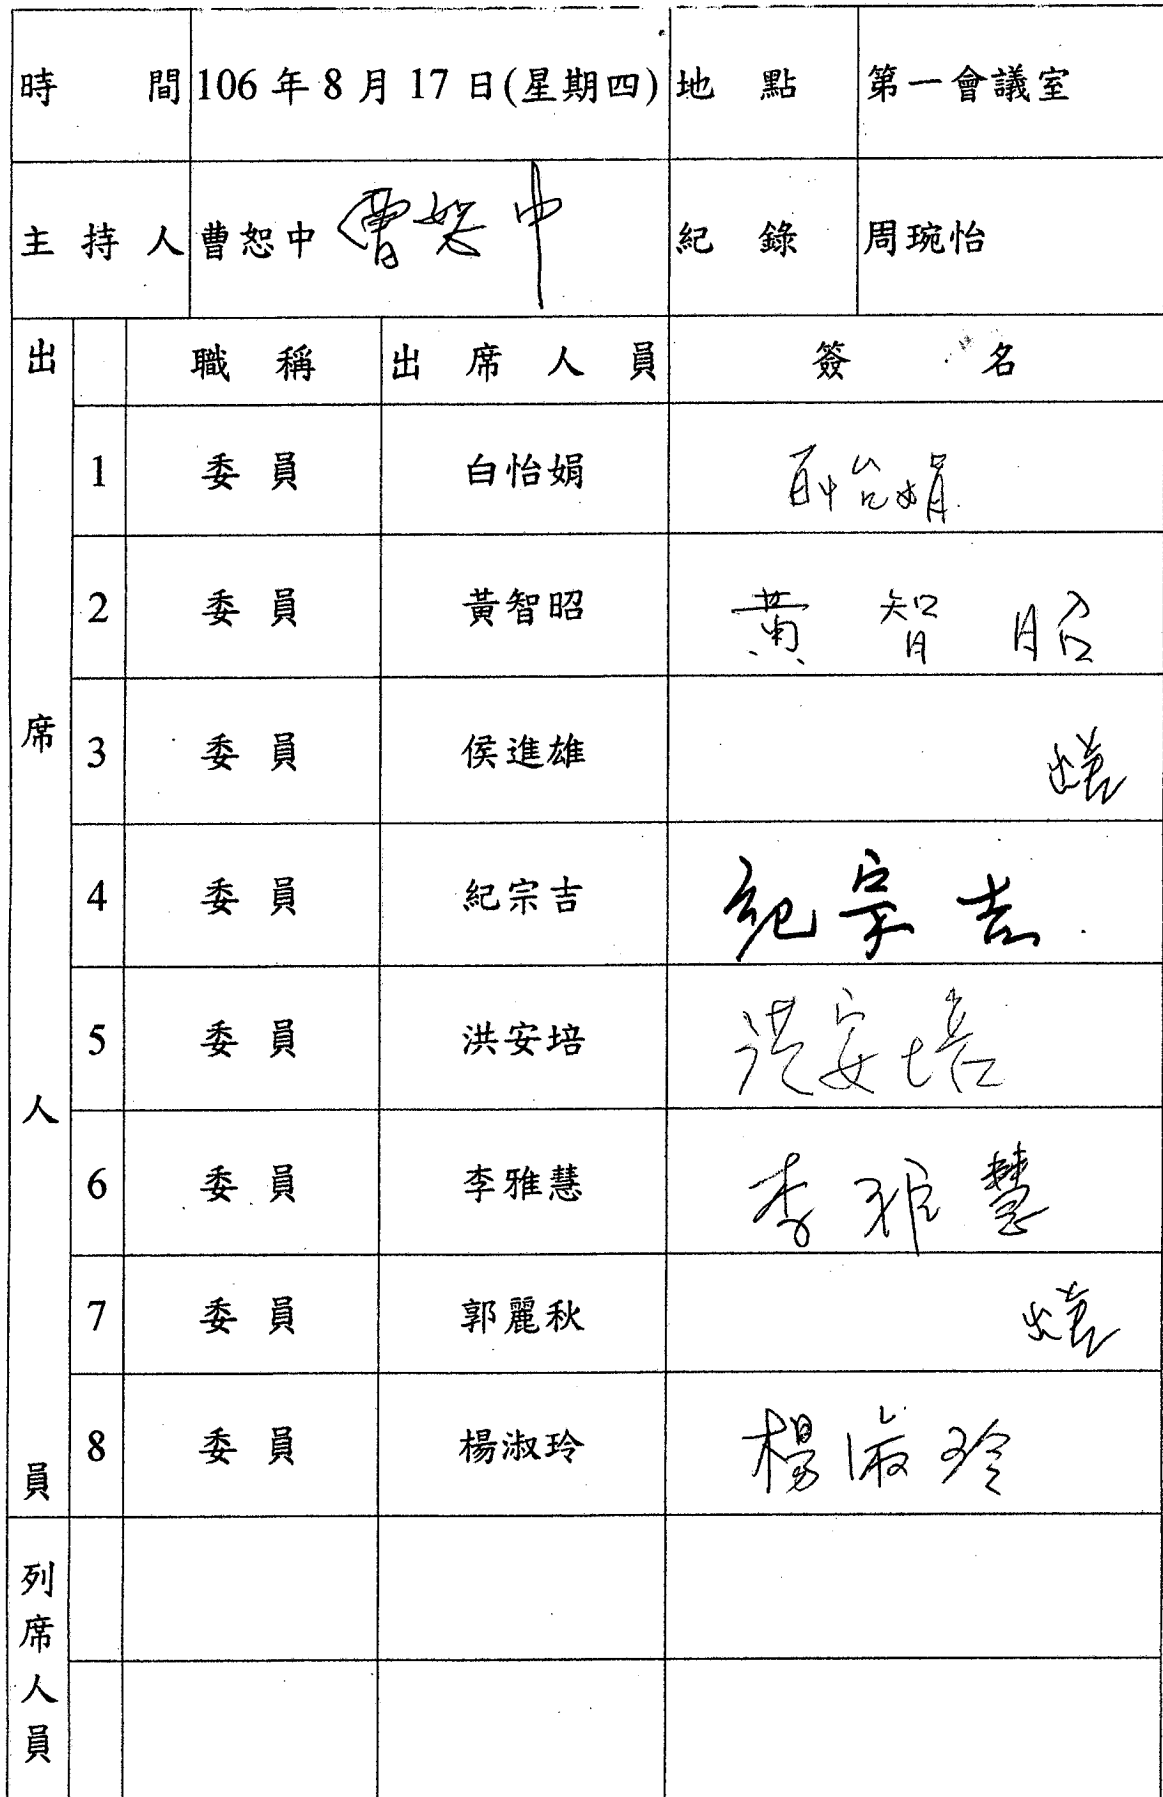 時 間 106 年 8 月 17 日(星期四) 地 點 第一會議室
主 持 人 曹恕中 曹恕中 紀 錄 周琬怡
出席人員 職 稱 出 席 人 員 簽 名
1 委 員 白怡娟 白怡娟
2 委 員 黃智昭 黃智昭
3 委 員 侯進雄
4 委 員 紀宗吉 紀宗吉
5 委 員 洪安培 洪安培
6 委 員 李雅慧 李雅慧
7 委 員 郭麗秋
8 委 員 楊淑玲 楊淑玲
列席人員